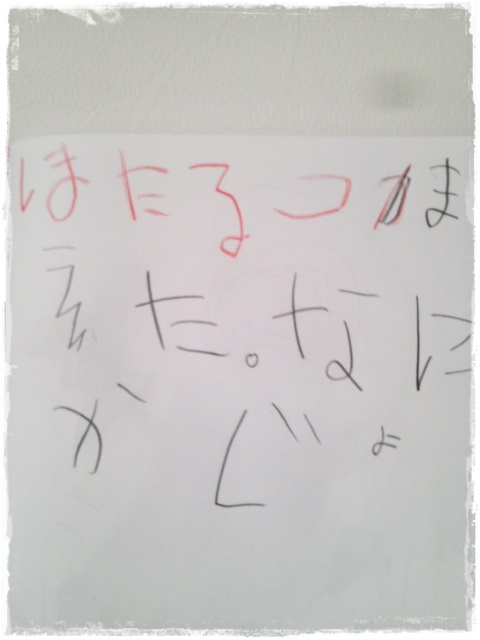 ほたるつま
えた。なに
かじょ